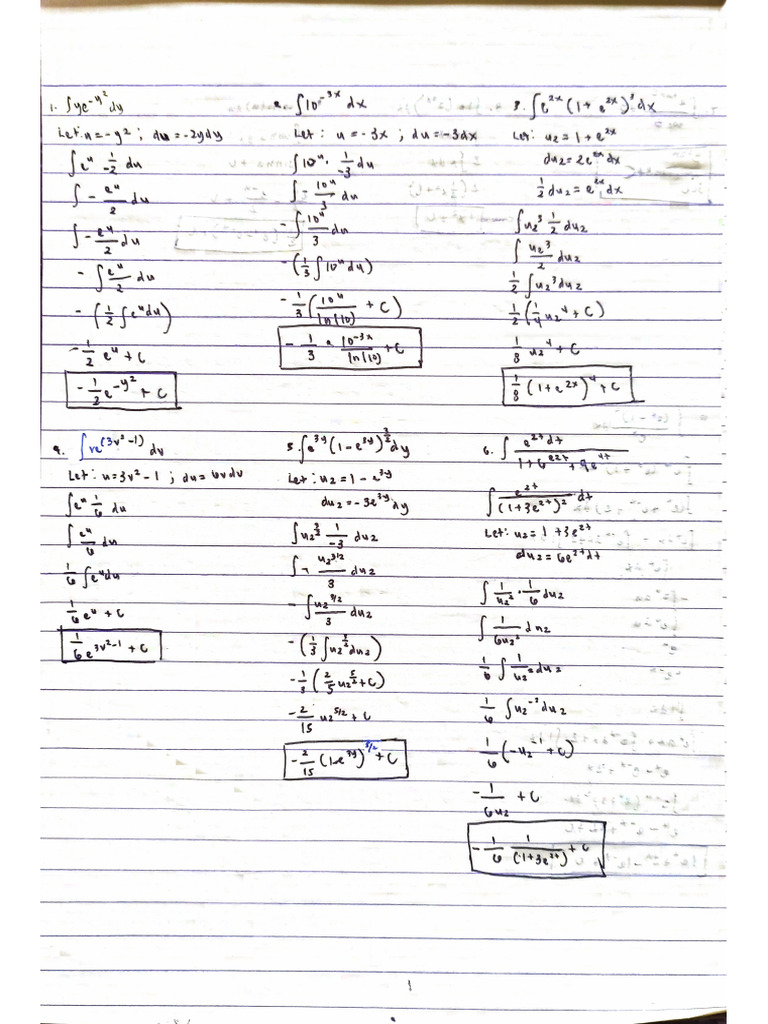 1. ∫ye^(-y²) dy
Let: u = -y² ; du = -2ydy
∫e^u 1/-2 du
∫ - e^u/2 du
∫ - e^u/2 du
- ∫ e^u/2 du
- (1/2 ∫e^u du)
- 1/2 e^u + C
- 1/2 e^(-y²) + C
2. ∫10^(-3x) dx
Let: u = -3x ; du = -3dx
∫10^u · 1/-3 du
∫ - 10^u/3 du
- ∫ 10^u/3 du
- (1/3 ∫10^u du)
- 1/3 (10^u/ln(10) + C)
- 1/3 · 10^(-3x)/ln(10) + C
3. ∫e^(2x) (1 + e^(2x))³ dx
Let: u₂ = 1 + e^(2x)
du₂ = 2e^(2x) dx
1/2 du₂ = e^(2x) dx
∫u₂³ 1/2 du₂
∫ u₂³/2 du₂
1/2 ∫u₂³ du₂
1/2 (1/4 u₂⁴ + C)
1/8 u₂⁴ + C
1/8 (1 + e^(2x))⁴ + C
4. ∫ve^(3v²-1) dv
Let: u = 3v² - 1 ; du = 6vdv
∫e^u 1/6 du
∫ e^u/6 du
1/6 ∫e^u du
1/6 e^u + C
1/6 e^(3v²-1) + C
5. ∫e^(3y) (1 - e^(3y))^(3/2) dy
Let: u₂ = 1 - e^(3y)
du₂ = -3e^(3y) dy
∫u₂^(3/2) 1/-3 du₂
∫ - u₂^(3/2)/3 du₂
- ∫ u₂^(3/2)/3 du₂
- (1/3 ∫u₂^(3/2) du₂)
- 1/3 (2/5 u₂^(5/2) + C)
- 2/15 u₂^(5/2) + C
- 2/15 (1-e^(3y))^(5/2) + C
6. ∫ e^(2t) dt / 1 + 6e^(2t) + 9e^(4t)
∫ e^(2t)/(1+3e^(2t))² dt
Let: u₂ = 1 + 3e^(2t)
du₂ = 6e^(2t) dt
∫ 1/u₂² · 1/6 du₂
∫ 1/6u₂² du₂
1/6 ∫ 1/u₂² du₂
1/6 ∫u₂^(-2) du₂
1/6 (-u₂^(-1) + C)
- 1/6u₂ + C
- 1/6 1/(1+3e^(2t)) + C
1